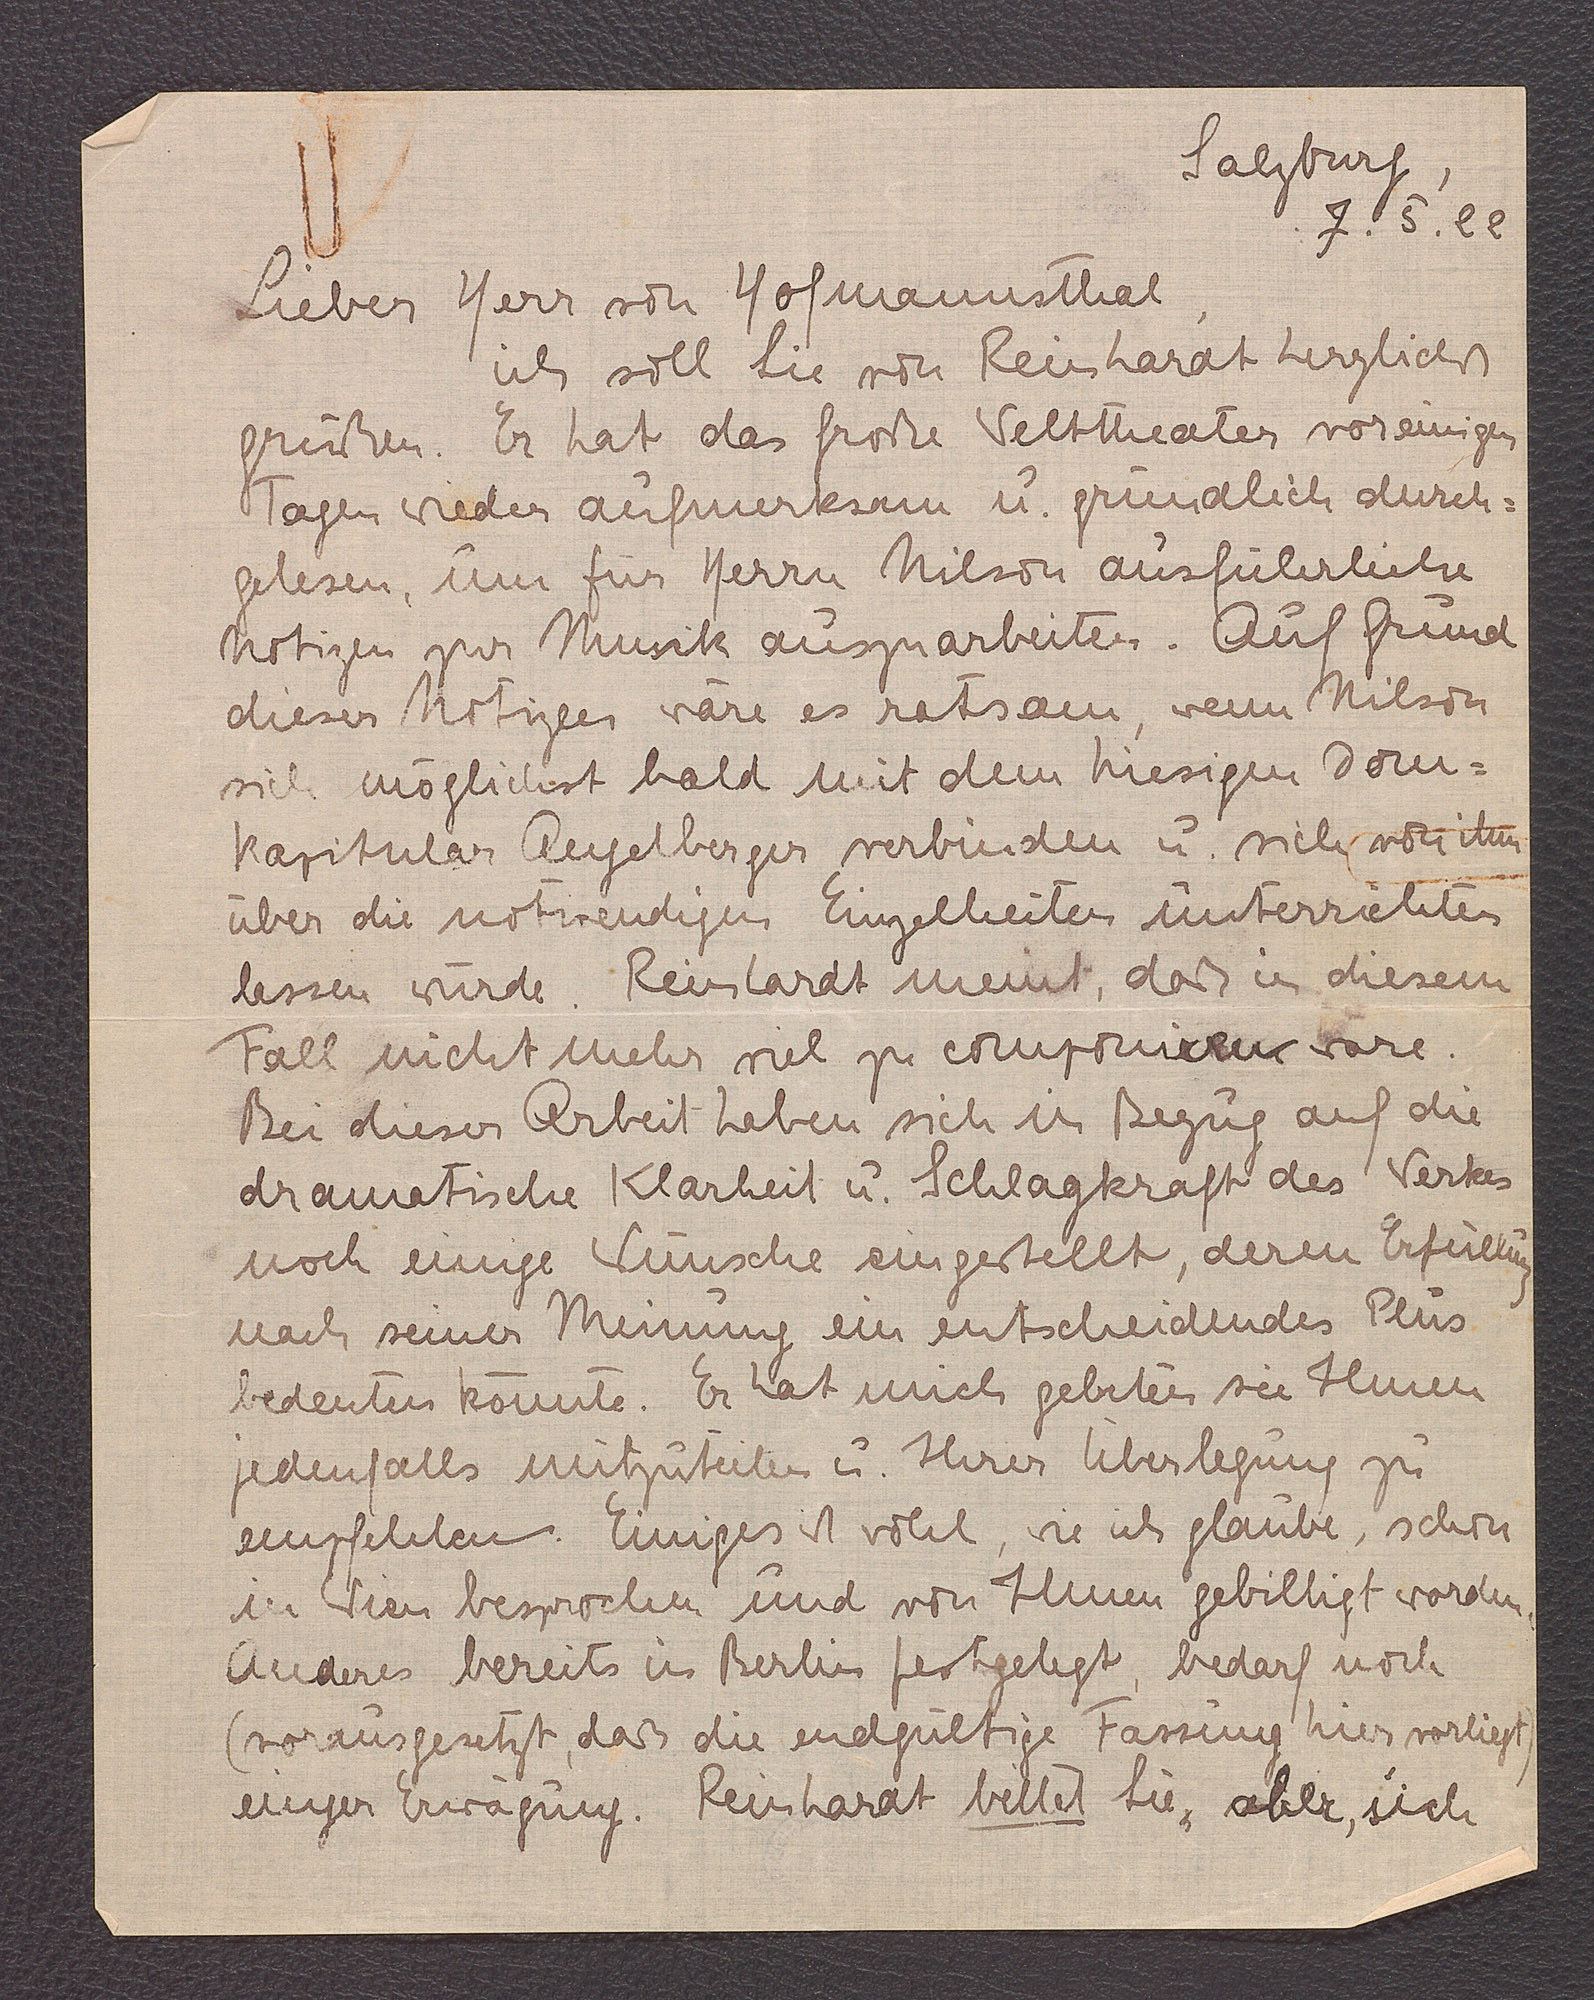 Salzburg,
7. 5. 22
Lieber Herr von Hofmannsthal,
ich soll Sie von Reinhardt herzlichst
grüßen. Er hat das große Welttheater vor einigen
Tagen wieder aufmerksam u. gründlich durch=
gelesen, um für Herrn Nilson ausführliche
Notizen zur Musik auszuarbeiten. Auf Grund
dieser Notizen wäre es ratsam, wenn Nilson
sich möglichst bald mit dem hiesigen Dom=
kapitular Angelberger verbinden u. sich von ihm
über die notwendigen Einzelheiten unterrichten
lassen würde. Reinhardt meint, daß in diesem
Fall nicht mehr viel zu componieren wäre.
Bei dieser Arbeit haben sich in Bezug auf die
dramatische Klarheit u. Schlagkraft des Werkes
noch einige Wünsche eingestellt, deren Erfüllung
nach seiner Meinung ein entscheidendes Plus
bedeuten könnte. Er hat mich gebeten sie Ihnen
jedenfalls mitzuteilen u. Ihrer Überlegung zu
empfehlen. Einiges ist wohl, wie ich glaube, schon
in Wien besprochen und von Ihnen gebilligt worden.
Anderes bereits in Berlin festgelegt, bedarf noch
(vorausgesetzt, daß die endgültige Fassung hier vorliegt)
einiger Erwägung. Reinhardt bittet Sie, aber, sich